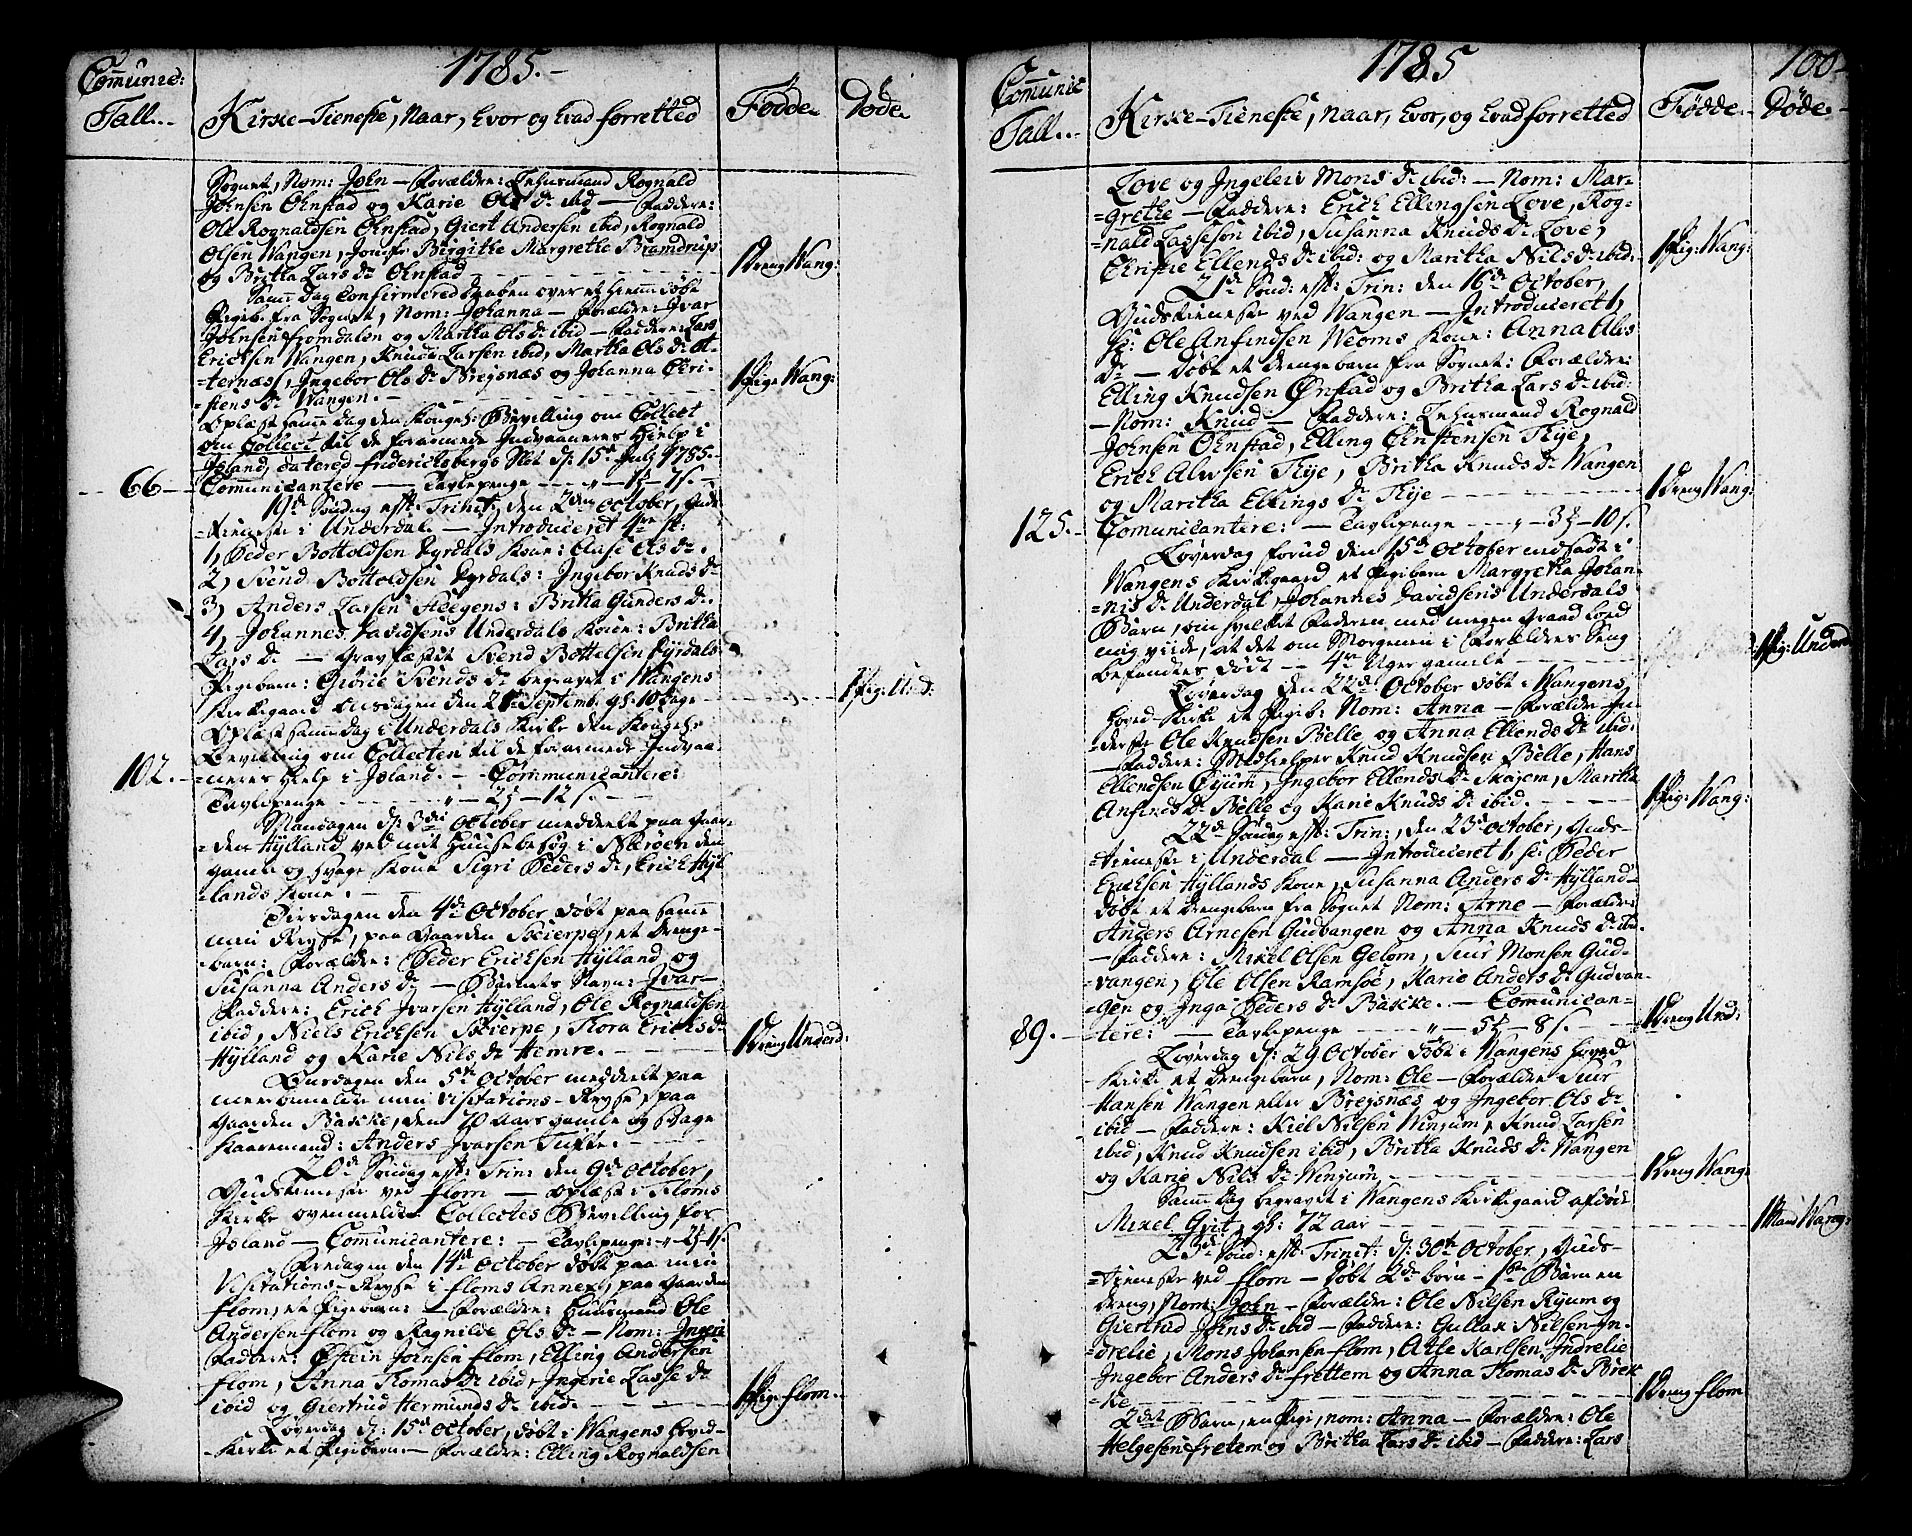 Comunic:
Tall..
1785.
Kirke-Tieneste, Naar, Hvor og hvad forretted
Fødde
Døde
Sognet, Nom: John – Forældre: Lehnsmand Rognald
Johnsen Ohnstad og Karie Ols D. ibid – Faddere:
Ole Rognaldsen Ohnstad, Giert Andersen ibid, Rognald
Olsen Wangen, Jomfr Birgithe Margrethe Bramdrup
og Britha Lars D. Ohnstad
1 Dreng Wang:
Samme Dag Confirmered Daaben over et hiemmedøbt
Pigeb. fra Sognet, Nom: Johanna – Forældre: Ivar
Johnsen Fromdalen og Martha Ols D. ibid – Faddere: Lars
Ericksen Wangen, Knud Larsen ibid, Martha Ols D. Ot-
=ternæss, Ingebor Ols D. Breisnæs og Johanna Chri-
=stens D. Wangen. –
1 Pige Wang:
Oplæst samme dag den Kongel: Bevilling om Collect
om Collect til de forarmede Indvaaneres Hielp i
Island, datered Friderichsbergs Slot d: 15de July 1785.
66 Comunicantere – Tavlepenge – „ – 1 – 7 s. –
19de Søndag eft: Trinit: den 2den October, Guds-
=tieneste i Underdal – Introduceret 4re sc:
1, Peder Bottoldsen Dyrdals Kone: Aase Ols D.
2, Svend Bottoldsen Dyrdals: Ingebor Knuds D.
3, Anders Larsen Steegens: Britha Gunders D.
4, Johannes Davidsens Underdals Kone: Britha
Lars D. – Gravfæstet Svend Bottelsen Dyrdals
Pigebarn: Giørie Svends D. begravet i Wangens
Kirkegaard Onsdagen den 21de Septemb. gl: 10 Dage
1 Pig: Und:
Oplæst samme dag i Underdals Kirke den Kongels:
Bevilling om Collecten til de forarmede Indvaa-
102. =neres Hielp i Island. – Communicantere:
Tavlepenge „ – 2 – 12 s. –
Mandagen d: 3die October meddeelt paa Gaar-
=den Hylland ved mit Huusbesøg i Nærøen den
gamle og svage Kone Sigri Peders D., Erick Hyl-
lands Kone. –
Tirsdagen den 4de October døbt paa samme
min Reyse, paa Gaarden Skierpe, et Drenge-
barn: Forældre: Peder Ericksen Hylland og
Susanna Anders D. – Barnets Navn: Ivar –
Faddere: Erich Ivarsen Hylland, Ole Rognaldsen
ibid, Niels Ericksen Skierpe, Thora Ericks D.
Hylland og Karie Nils D. Hemre. –
1 Dreng Underd:
Onsdagen den 5te October meddeelt paa
meerommeldte min visitations-Reyse, paa
Gaarden Bakke, den 70 Aars gamle og svage
Haaremand: Anders Ivarsen Tufte. –
20de Søndag eft: Trin: den 9de October,
Gudstieneste ved Flom – Oplæst i Floms
Kirke ovenmeldte Collectes Bevilling for
Island – Comunicantere: – Tavlepenge: „ 2 – 1 s.
Fredagen den 14de October døbt paa min
Visitations-Reyse i Floms Annex, paa Gaarden
Flom, et Pigebarn: – Forældre: Huusmand Ole
Andersen Flom og Ragnilde Ols D. – Nom: Ingeri
Faddere: Østein Johnsen Flom, Elling Andersen
Flom, Anna Thomas D. ibid, Ingerie Lasse D.
ibid og Giertrud Hermunds D. ibid.
1 Pig: Flom.
Løverdag d: 15de October, døbt i Wangens Hoved-
-Kirke et Pigebarn. – Forældre: Elling Rognaldsen
Comunic
Tall..
1785
100
Kirke-Tieneste, Naar, Hvor, og hvad forretted
Fødde
Døde
Love og Ingeleiv Mons D. ibid: – Nom: Mar-
=grethe – Faddere: Erich Ellingsen Love, Rog-
=nald Lasseson ibid, Susanna Knuds D. Love,
Christie Ellends D. ibid: og Maritha Nils D. ibid.
1 Pig: Wang:
21de Sønd: eft: Trin: den 16de October,
Gudstieneste ved Wangen – Introduceret 1,
sc: Ole Anfindsen Weoms Kone: Anna Ols
D. – Døbt et Drengebarn fra Sognet: Forældre:
Elling Knudsen Ønstad og Britha Lars D. ibid:
– Nom: Knud – Faddere: Lehnsmand Rognald
Johnsen Ohnstad, Elling Ohnstensen Skye,
Erich Alvsen Skye, Britha Knuds D. Wangen
og Maritha Ellings D. Skye
1 Dreng Wang:
125. Comunicantere: – Tavlepenge „ – 3 – 10 s.
Løverdag forud den 15de October nedsadt i
Wangens Kirkegaard et Pigebarn Margretha Johan-
=nis D. Underdal, Johannes Davidsens Underdals
Barn, om hvilket Faderen med megen Graad loed
mig viide, at det om Morgenen i Forældres Seng
befandtes dødt – 4re Uger gamelt
1 Pig: Underd
Løverdag den 22de October døbt i Wangens
Hoved-Kirke et Pigeb: Nom: Anna – Forældre In-
=derste Ole Knudsen Belle og Anna Ellends D. ibid.
– Faddere: Knud Knudsen Belle, Hans
Ellendsen Øyum, Ingebor Ellends D. Skajem, Maritha
Anfinds D. Belle og Karie Knuds D. ibid. –
1 Pig: Wang:
22de Søndag eft: Trin:, den 23de October, Guds-
=tieneste i Underdal – Introduceret 1, sc: Peder
Ericksen Hyllands Kone, Susanna Anders D. Hylland –
døbt et Drengebarn fra Sognet Nom: Arne – Forældre:
Anders Arneson Gudvangen og Anna Knuds D. ibi.
– Faddere: Mikel Olsen Gelom, Siur Monsen Gud-
=vangen, Ole Olsen Ramsøe, Karie Anders D. Gudvan-
=gen og Inga Peders D. Bakke. – Comunican-
89. =tere: – Tavlepenge – „ – 5 – 8 s. –
1 Dreng Und:
Løverdag d: 29 October døbt i Wangens Hoved
Kirke et Drengebarn, Nom: Ole – Forældre Siur
Hansen Wangen eller Breisnæs og Ingebor Ols D.
ibid – Faddere: Kiel Nilsen Winjum, Knud Larsen
ibid, Knud Knudsen ibid, Britha Knuds D. Wangen
og Karie Nils D. Winjum.
1 Dreng Wang:
Samme Dag begravet i Wangens Kirkegaard afdøde
Mikel Grit, gl: 72 aar
1 Mand Wang:
23de Sønd: eft: Trinit: d: 30te October, Guds-
=tieneste ved Flom – Døbt 2de børn – 1ste Barn en
Dreng, Nom: John – Forældre: Ole Nilsen Ryum og
Giertrud Johns D. ibid – Faddere: Gullak Nilsen In-
=drelie, Mons Johansen Flom, Atle Karlsen Indrelie
Ingebor Anders D. Frettem og Anna Thomas D. Brek
=ke
1 Dreng Flom
2det Barn, en Pige, nom: Anna – Forældre: Ole
Helgesen Fretem og Britha Lars D. ibid – Faddere: Lars